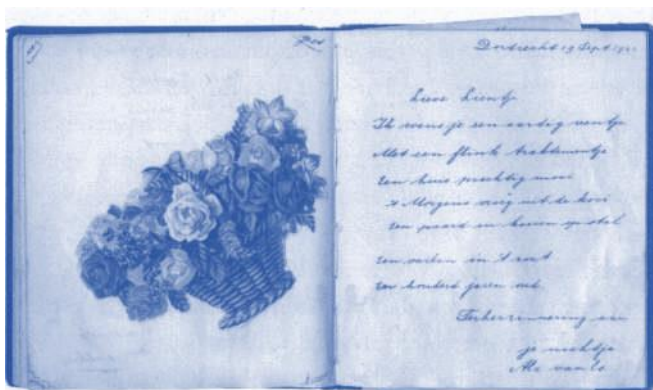 Dordrecht 19 Sept 19
Lieve Lientje
Ik wens je een aardig ventje
Met een flink traktementje
Een huis prachtig mooi
's Morgens vroeg uit de kooi
Een paard en koeien op stal
Een varken in 't
En honderd jaren oud
Ter herinnering aan
je nichtje